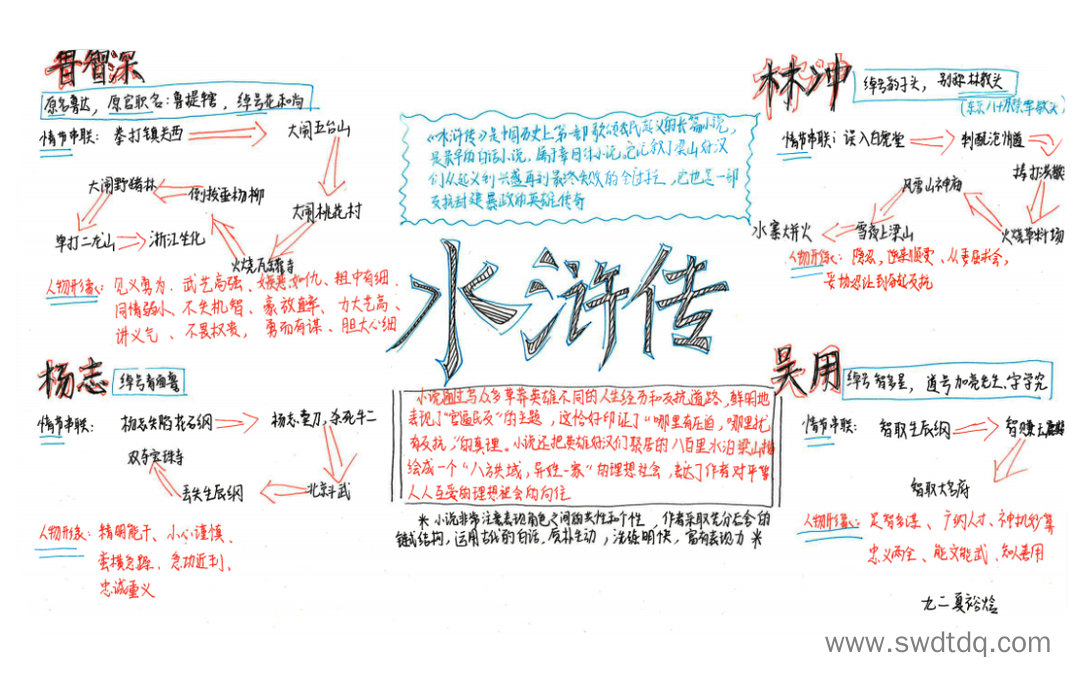 鲁智深
原名鲁达，原官职名：鲁提辖，绰号花和尚
情节串联：拳打镇关西
大闹五台山
大闹桃花村
火烧瓦罐寺
倒拔垂杨柳
大闹野猪林
单打二龙山
浙江坐化
人物形象：见义勇为、武艺高强、嫉恶如仇、粗中有细、
同情弱小、不失机智、豪放直率、力大艺高、
讲义气、不畏权贵、勇而有谋、胆大心细
杨志
绰号青面兽
情节串联：
杨志失陷花石纲
杨志卖刀，杀死牛二
北京斗武
丢失生辰纲
双夺宝珠寺
人物形象：精明能干、小心谨慎、
蛮横急躁、急功近利、
忠诚重义
《水浒传》是中国历史上第一部歌颂农民起义的长篇小说，
是最早的白话小说，属于章回体小说，它记叙了梁山好汉
们从起义到兴盛再到最终失败的全过程，它也是一部
反抗封建暴政的英雄传奇
水浒传
小说通过写众多草莽英雄不同的人生经历和反抗道路，鲜明地
表现了“官逼民反”的主题，这恰好印证了“哪里有压迫，哪里就
有反抗，”的真理。小说还把英雄好汉们聚居的八百里水泊梁山描
绘成一个“八方共域，异姓一家”的理想社会，表达了作者对平等
人人互爱的理想社会的向往
* 小说非常注意表现角色之间的共性和个性，作者采取先分后合的
链式结构，运用古代的白话，质朴生动，洗练明快，富有表现力 *
林冲
绰号豹子头，别称林教头
(东京八十万禁军教头)
情节串联：误入白虎堂
刺配沧州道
棒打洪教头
火烧草料场
风雪山神庙
雪夜上梁山
水寨大并火
人物形象：隐忍、逆来顺受、从委屈求全，
妥协忍让到奋起反抗
吴用
绰号智多星，道号加亮先生，字学究
情节串联：
智取生辰纲
智赚玉麒麟
智取大名府
人物形象：足智多谋、广纳人才、神机妙算
忠义两全、能文能武、知人善用
九二夏裕焓
www.swdtdq.com